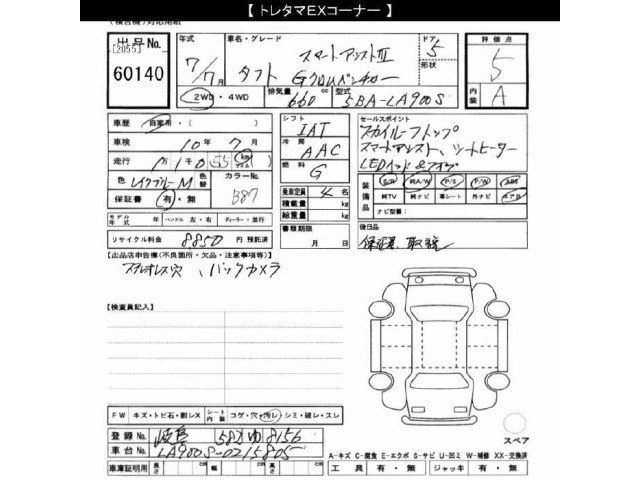 【 トレタマEXコーナー 】
出品No.
[2055]
60140
年式
7/7月
車名・グレード
スマートアシストⅢ
タフト Gクロムベンチャー
ドア 5
形状
排気量 660 cc
型式 5BA-LA900S
2WD・4WD
評価点
5
内装 A
車歴 自家用・( )
車検 10年 7月
走行
色 レイクブルーM
色替
カラーNo. B87
保証書 有・無
モデル年式 年 ハンドル 左・右 ディーラー・並行
リサイクル料金 8850 円 預託済
シフト IAT
冷房 AAC
燃料 G
乗車定員 4 名
積載量 kg
総重量 kg
書類期限
月 日
セールスポイント
スカイルーフトップ
スマートアシスト、シートヒーター
LEDヘッド&フォグ
装備品
S/R M/W P/S P/W ABS
MTV Mナビ 革シート 外ナビ エアB
ナビ型番:
後日品
保証書、取説
【出品店申告欄(不良箇所・欠品・注意事項等)】
ステレオレス穴、バックカメラ
【検査員記入】
FW キズ・トビ石・割レX シート内装 コゲ・穴・汚レ・シミ・破レ・スレ
登録No. 岐阜 582 ゆ 8156
車台No. LA900S-0215805
車庫証明用 長さ cm 幅 cm 高さ cm
スペア
A-キズ C-腐食 E-エクボ S-サビ U-凹ミ W-補修 XX-交換済
工具 有・無 ジャッキ 有・無